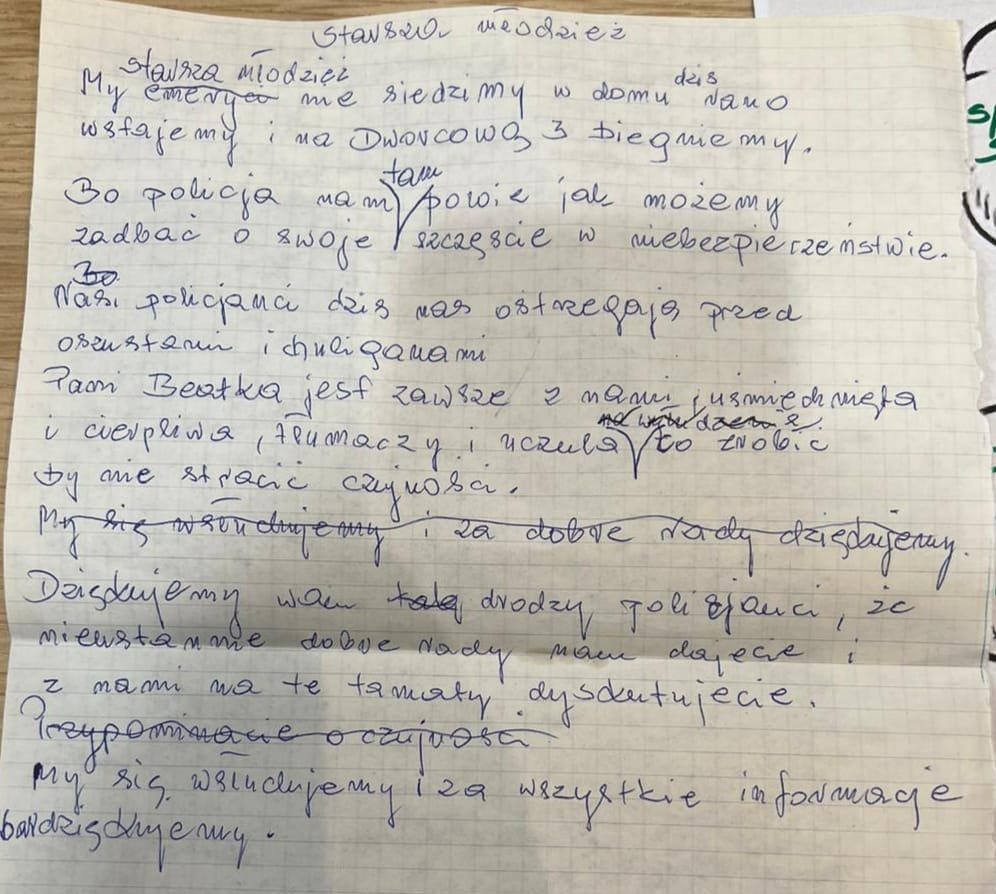 Starsza młodzież
starsza młodzież
My emeryci nie siedzimy w domu dziś rano
wstajemy i na Dworcową 3 biegniemy.
Bo policja nam tam powie jak możemy
zadbać o swoje szczęście w niebezpieczeństwie.
Bo
Nasi policjanci dziś nas ostrzegają przed
oszustami i chuliganami
Pani Beatka jest zawsze z nami, uśmiechnięta
i cierpliwa, tłumaczy i uczula co zrobić
by nie stracić czujności.
My się wsłuchujemy i za dobre rady dziękujemy.
Dziękujemy wam drodzy policjanci, że
nieustannie dobre rady nam dajecie i
z nami na te tamaty dyskutujecie.
Przypominacie o czujności
My się wsłuchujemy i za wszystkie informacje
bardzo dziękujemy.